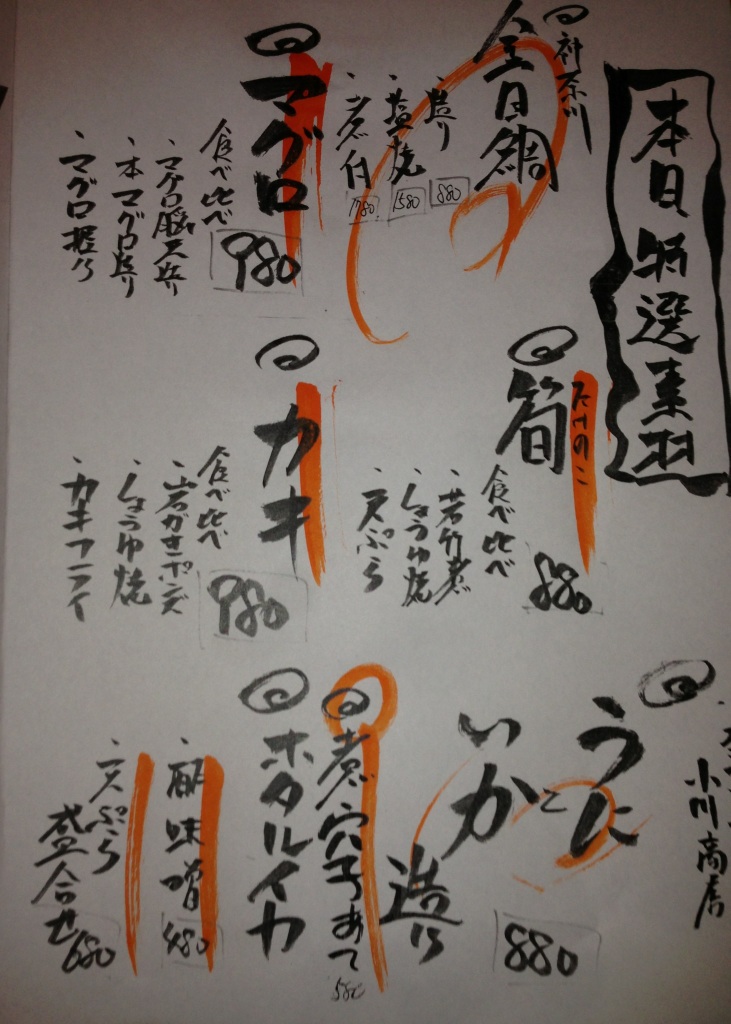 本日特選素材
神奈川
金目鯛
・造り 880
・塩焼 1580
・煮付 1780
マグロ
食べ比べ 980
・マグロ脳天造り
・本マグロ造り
・マグロ握り
たけのこ
筍
食べ比べ 880
・若竹煮
・しょうゆ焼
・天ぷら
カキ
食べ比べ 980
・岩ガキポンズ
・しょうゆ焼
・カキフライ
小川商店
うに
いか
造り 880
煮穴子あて 580
ホタルイカ
・酢味噌 480
・天ぷら
盛合せ 680